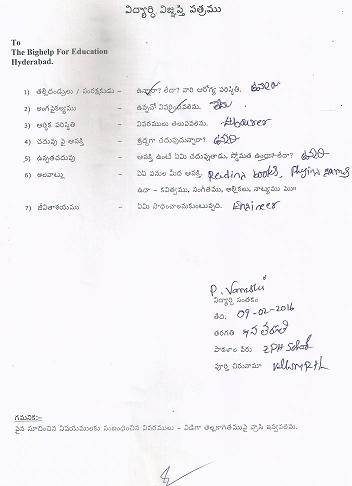 విద్యార్థి విజ్ఞప్తి పత్రము
To
The Bighelp For Education
Hyderabad.
1) తల్లిదండ్రులు / సంరక్షకుడు - ఉన్నారా? లేదా? వారి ఆరోగ్య పరిస్థితి.
2) అంగవైకల్యము - ఉన్నచో వివరించవలెను. లేదు
3) ఆర్థిక పరిస్థితి - వివరములు తెలుపవలెను.
4) చదువు పై ఆసక్తి - శ్రద్ధగా చదువుచున్నారా? ఉంది
5) ఉన్నతచదువు - ఆసక్తి ఉంటే ఏమి చదువుతాడు, స్తోమత ఉందా? లేదా? ఉంది
6) అలవాట్లు - ఏఏ పనుల మీద ఆసక్తి. Reading books, Playing games
ఉదా - కవిత్వము, సంగీతము, ఆర్టికలు, నాట్యము మొ॥
7) జీవితాశయము - ఏమి సాధించాలనుకుంటున్నది. Engineer
P. Vamshi
విద్యార్థి సంతకం
తేది. 09-02-2016
తరగతి
పాఠశాల పేరు ZPH School
పూర్తి చిరునామా
గమనిక:-
పైన సూచించిన విషయములకు సంబంధించిన వివరములు - విడిగా తెల్లకాగితముపై వ్రాసి ఇవ్వవలెను.